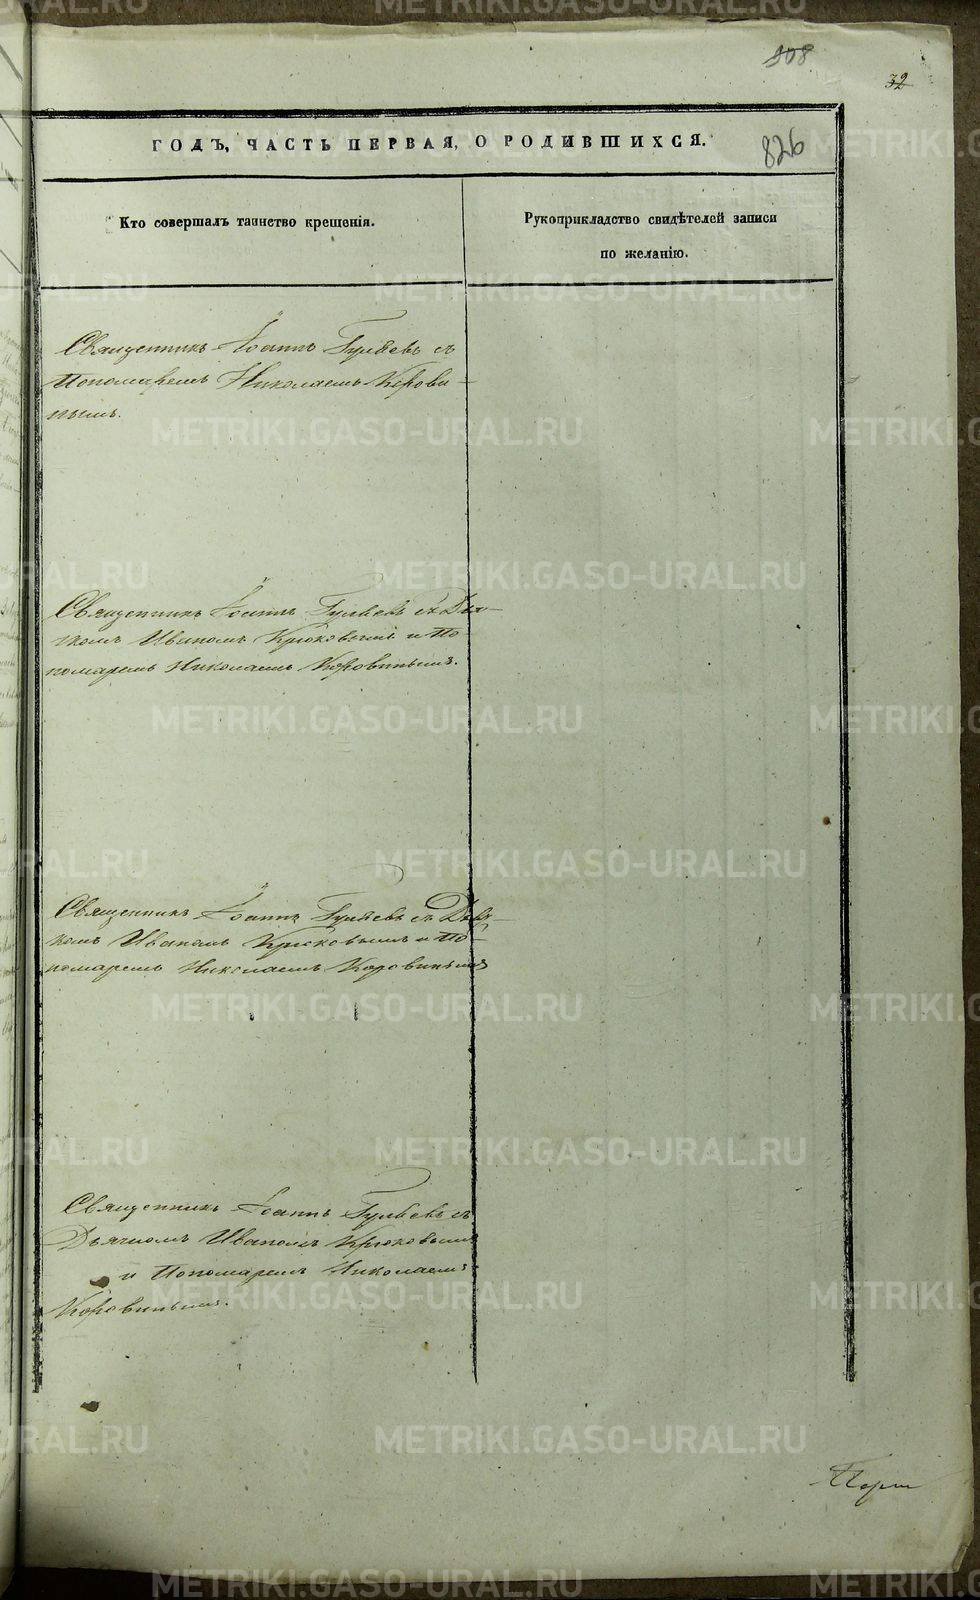 108
32
ГОДЪ, ЧАСТЬ ПЕРВАЯ, О РОДИВШИХСЯ.
826
Кто совершалъ таинство крещенія.
Рукоприкладство свидѣтелей записи
по желанію.
Священникъ Іоаннъ Гуляевъ съ
Пономаремъ Николаемъ Корови-
нымъ.
Священникъ Іоаннъ Гуляевъ съ Дья-
комъ Иваномъ Крюковымъ и По
номаремъ Николаемъ Коровинымъ.
Священникъ Іоаннъ Гуляевъ съ
комъ Иваномъ Крюковымъ и По-
номаремъ Николаемъ Коровинымъ
Священникъ Іоаннъ Гуляевъ съ
Дьячкомъ Иваномъ Крюковымъ
и Пономаремъ Николаемъ
Коровинымъ.
METRIKI.GASO-URAL.RU